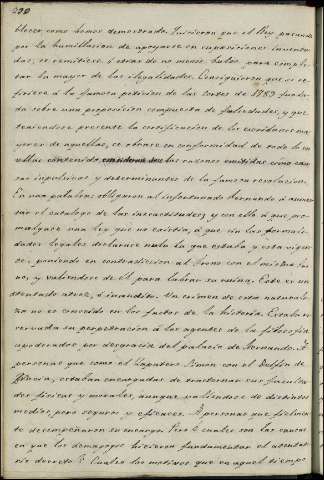 200
blecer como hemos demostrado. Quisieron que el Rey pasando
por la humillacion de apoyarse en suposiciones inventa-
das, se remitiese á otras de no menos bulto para comple-
tar la mayor de las ilegalidades. Consiguieron que se re-
firiese á la famosa peticion de las Cortes de 1789 funda-
da sobre una proposicion compuesta de falsedades, y que
teniendose presente la certificacion de los escribanos ma-
yores de aquellas, se obrase en conformidad de todo lo en
ellas contenido las razones emitidas como cau-
sas impulsivas y determinantes de la famosa resolucion.
En una palabra: obligaron al infortunado Fernando á aumen-
tar el catalogo de las inexactitudes, y con ello á que pro-
mulgase una ley que no existia, á que sin las formali-
dades legales declarase nula la que estaba y esta vigen-
te, poniendo en contradiccion al Trono con el mismo Tro-
no, y valiendose de él para labrar su ruina. Este es un
atentado atroz, é inaudito. Un crimen de esta naturale-
za no es conocido en los fastos de la historia. Estaba re-
servada su perpetracion á los agentes de la
apoderados por desgracia del palacio de Fernando. Á
personas que como el Zapatero Simon con el Delfin de
Francia, estaban encargadas de trastornar sus faculta-
des fisicas y morales, aunque valiendose de distintos
medios, pero seguros y eficaces. Á personas que fielmen-
te desempeñaron su encargo. Pero ¿cuales son las causas
en que los demagogos hicieron fundamentar el atentato-
rio decreto? Cuales los motivos que en aquel tiempo